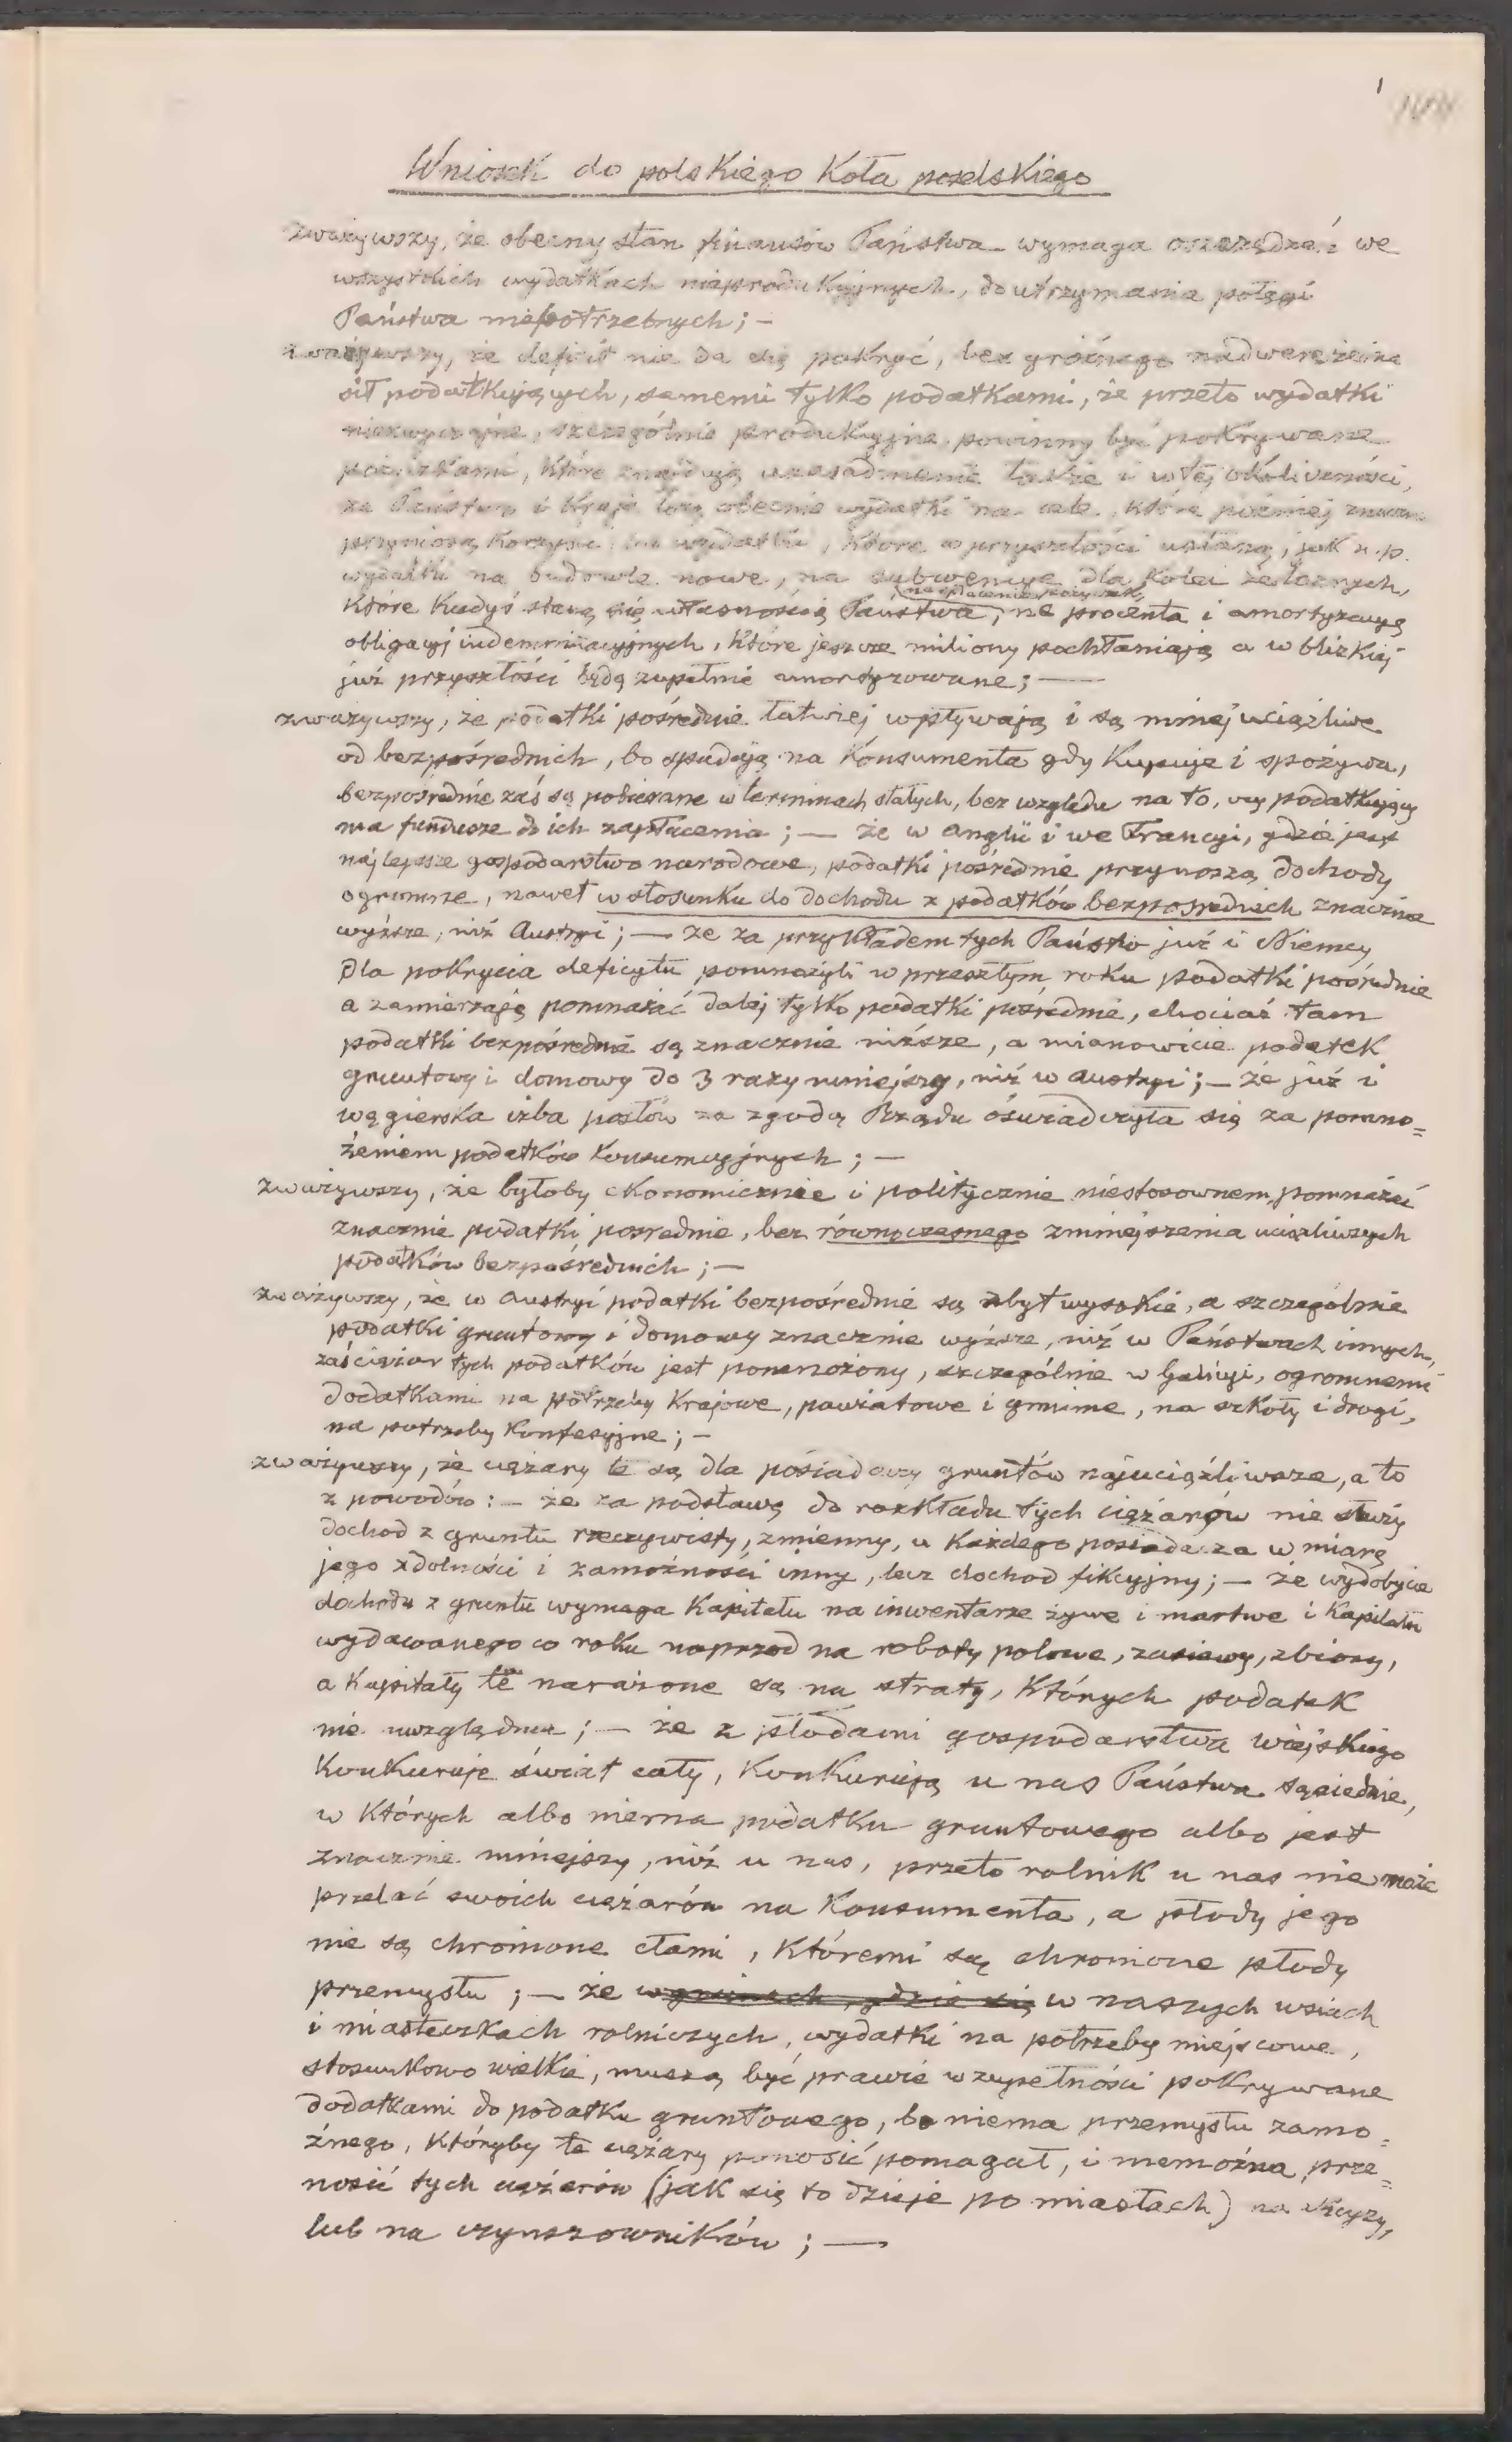 1
Wniosek do polskiego Koła poselskiego
zważywszy, że obecny stan finansów Państwa wymaga oszczędzań we
wszystkich wydatkach nieprodukcyjnych, do utrzymania potęgi
Państwa niepotrzebnych; —
zważywszy, że deficit nie da się pokryć, bez groźnego nadwerężenia
sił podatkujących, samemi tylko podatkami, że przeto wydatki
niezwyczajne, szczególnie produkcyjne powinny być pokrywane
pożyczkami, które znajdują uzasadnienie także i w tej okoliczności,
że Państwo i Kraje łożą obecnie wydatki na cele, które później znaczne
przyniosą korzyści, lub wydatki, które w przyszłości ustaną, jak n.p.
wydatki na budowle nowe, na subwencye dla kolei żelaznych,
na spłacenie pożyczek,
które kiedyś staną się własnością Państwa, na procenta i amortyzacyę
obligacyj indemnizacyjnych, które jeszcze miliony pochłaniają a w blizkiej
już przyszłości będą zupełnie amortyzowane; —
zważywszy, że podatki pośrednie łatwiej wpływają i są mniej uciążliwe
od bezpośrednich, bo spadają na konsumenta gdy kupuje i spożywa,
bezpośrednie zaś są pobierane w terminach stałych, bez względu na to, czy podatkujący
ma fundusze do ich zapłacenia; — że w Anglii i we Francyi, gdzie jest
najlepsze gospodarstwo narodowe, podatki pośrednie przynoszą dochody
ogromne, nawet w stosunku do dochodu z podatków bezpośrednich znacznie
wyższe, niż Austryi; — że za przykładem tych Państw już i Niemcy
dla pokrycia deficytu pomnożyli w przeszłym roku podatki pośrednie
a zamierzają pomnażać dalej tylko podatki pośrednie, chociaż tam
podatki bezpośrednie są znacznie niższe, a mianowicie podatek
gruntowy i domowy do 3 razy mniejszy, niż w Austryi; — że już i
węgierska izba posłów za zgodą Rządu oświadczyła się za pomno=
żeniem podatków konsumcyjnych; —
zważywszy, że byłoby ekonomicznie i politycznie niestosownem, pomnażać
znacznie podatki pośrednie, bez równoczesnego zmniejszenia uciążliwszych
podatków bezpośrednich; —
zważywszy, że w Austryi podatki bezpośrednie są zbyt wysokie, a szczególnie
podatki gruntowy i domowy znacznie wyższe, niż w Państwach innych,
zaś ciężar tych podatków jest pomnożony, szczególnie w Galicyi, ogromnemi
dodatkami na potrzeby krajowe, powiatowe i gminne, na szkoły i drogi,
na potrzeby konfesyjne; —
zważywszy, że ciężary te są dla posiadaczy gruntów najuciążliwsze, a to
z powodów: — że za podstawę do rozkładu tych ciężarów nie służy
dochod z gruntu rzeczywisty, zmienny, u każdego posiadacza w miarę
jego zdolności i zamożności inny, lecz dochod fikcyjny; — że wydobycie
dochodu z gruntu wymaga kapitału na inwentarze żywe i martwe i kapitału
wydawanego co roku naprzod na roboty polowe, zasiewy, zbiory,
a kapitały te narażone są na straty, których podatek
nie uwzględnia; — że z płodami gospodarstwa wiejskiego
konkuruje świat cały, konkurują u nas Państwa sąsiednie,
w których albo niema podatku gruntowego albo jest
znacznie mniejszy, niż u nas, przeto rolnik u nas nie może
przelać swoich ciężarów na konsumenta, a płody jego
nie są chronione cłami, któremi są chronione płody
przemysłu; — że w gminach, gdzie się w naszych wsiach
i miasteczkach rolniczych, wydatki na potrzeby miejscowe,
stosunkowo wielkie, muszą być prawie w zupełności pokrywane
dodatkami do podatku gruntowego, bo niema przemysłu zamo=
żnego, któryby te ciężary ponosić pomagał, i niemożna prze=
nosić tych ciężarów (jak się to dzieje po miastach) na
lub na czynszowników; —